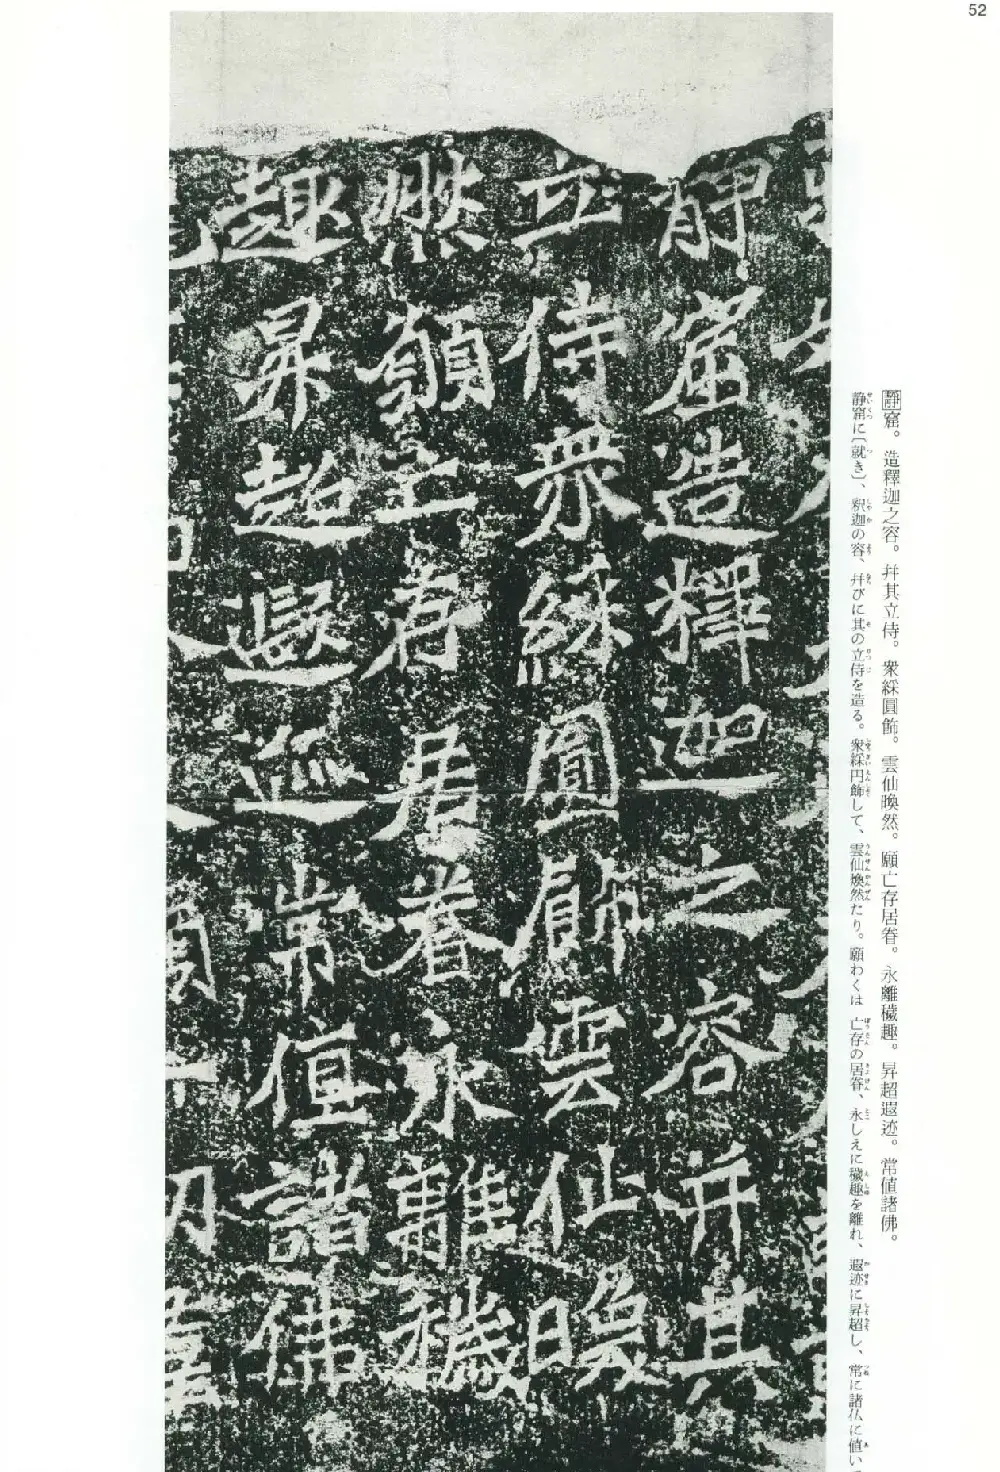 52
靜窟造釋迦之容幷其
立侍衆綵圓飾雲仙㬇
然願亡存居眷永離穢
趣昇超遐迹常值諸佛
靜窟。造釋迦之容。幷其立侍。衆綵圓飾。雲仙㬇然。願亡存居眷。永離穢趣。昇超遐迹。常値諸佛。
静窟に〔就き〕、釈迦の容、幷びに其の立侍を造る。衆綵円飾して、雲仙煥然たり。願わくは 亡存の居眷、永しえに穢趣を離れ、遐迹に昇超し、常に諸仏に値い